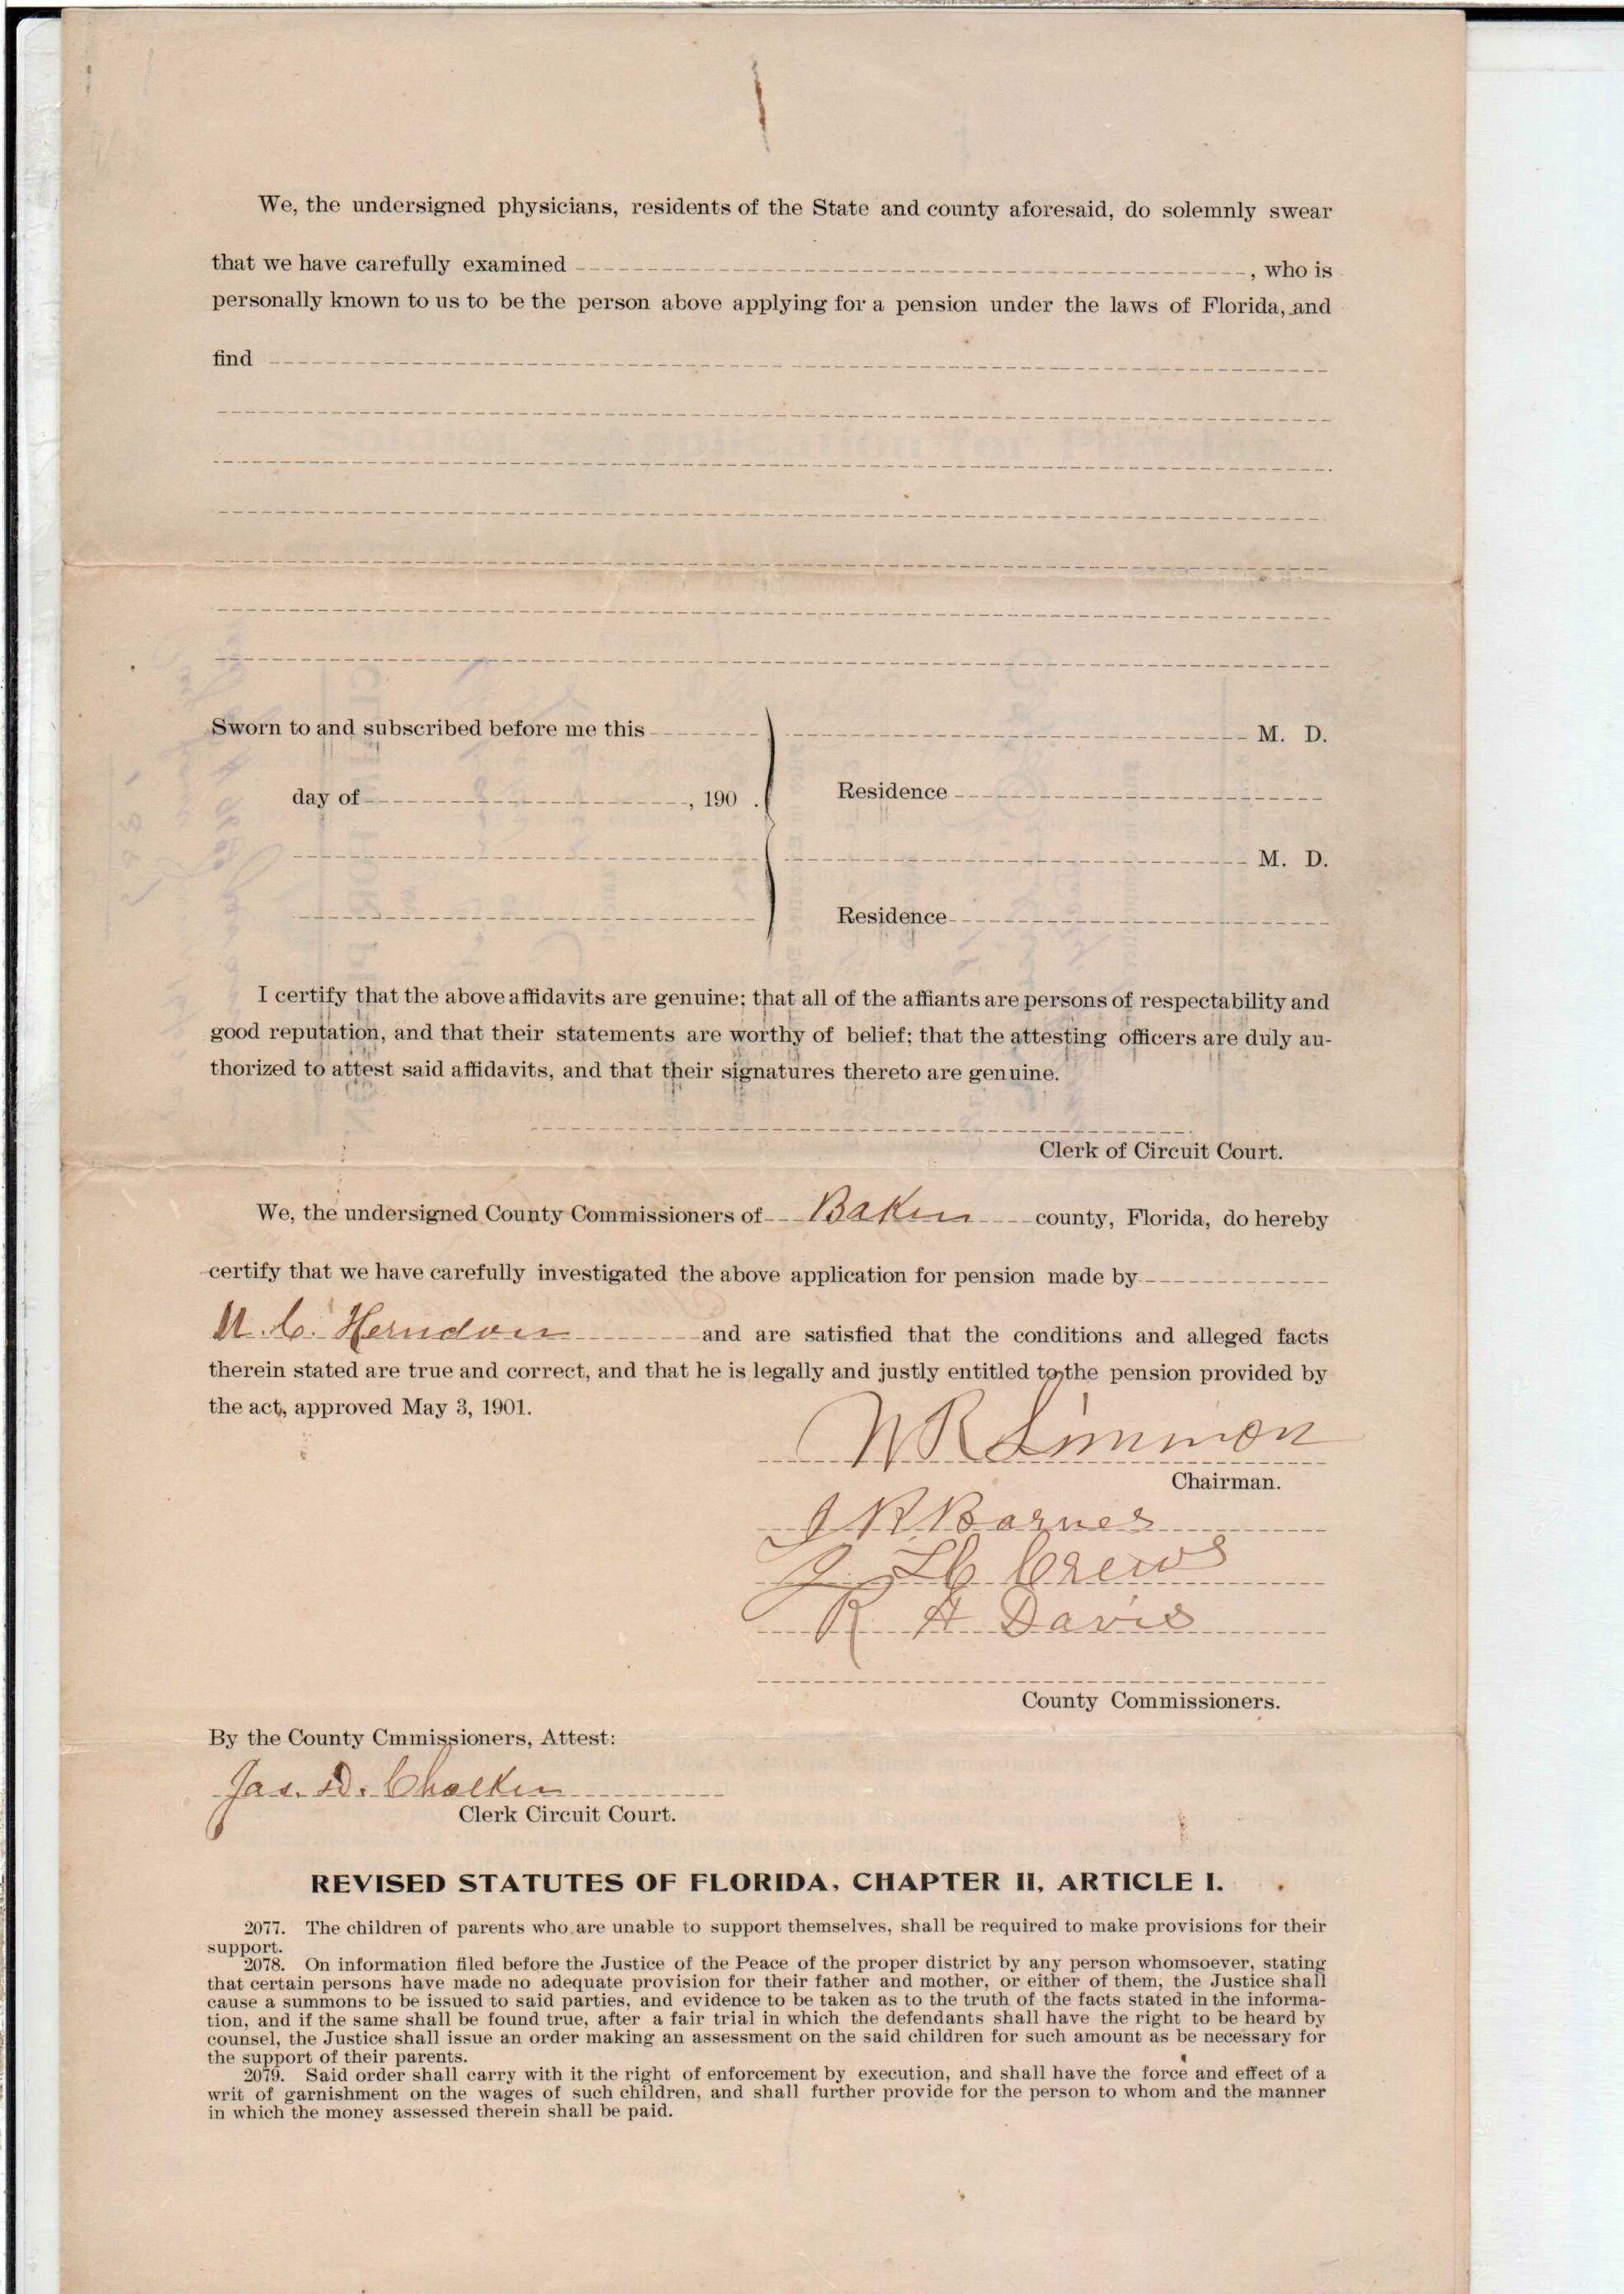 We, the undersigned physicians, residents of the State and county aforesaid, do solemnly swear
that we have carefully examined , who is
personally known to us to be the person above applying for a pension under the laws of Florida, and
find
Sworn to and subscribed before me this M. D.
day of , 190 . Residence
M. D.
Residence
I certify that the above affidavits are genuine; that all of the affiants are persons of respectability and
good reputation, and that their statements are worthy of belief; that the attesting officers are duly au-
thorized to attest said affidavits, and that their signatures thereto are genuine.
Clerk of Circuit Court.
We, the undersigned County Commissioners of Baker county, Florida, do hereby
certify that we have carefully investigated the above application for pension made by
Herndon and are satisfied that the conditions and alleged facts
therein stated are true and correct, and that he is legally and justly entitled to the pension provided by
the act, approved May 3, 1901.
Chairman.
J R Barnes
Crews
R H Davis
County Commissioners.
By the County Cmmissioners, Attest:
Jas. D. Chalker
Clerk Circuit Court.
REVISED STATUTES OF FLORIDA, CHAPTER II, ARTICLE I.
2077. The children of parents who are unable to support themselves, shall be required to make provisions for their
support.
2078. On information filed before the Justice of the Peace of the proper district by any person whomsoever, stating
that certain persons have made no adequate provision for their father and mother, or either of them, the Justice shall
cause a summons to be issued to said parties, and evidence to be taken as to the truth of the facts stated in the informa-
tion, and if the same shall be found true, after a fair trial in which the defendants shall have the right to be heard by
counsel, the Justice shall issue an order making an assessment on the said children for such amount as be necessary for
the support of their parents.
2079. Said order shall carry with it the right of enforcement by execution, and shall have the force and effect of a
writ of garnishment on the wages of such children, and shall further provide for the person to whom and the manner
in which the money assessed therein shall be paid.